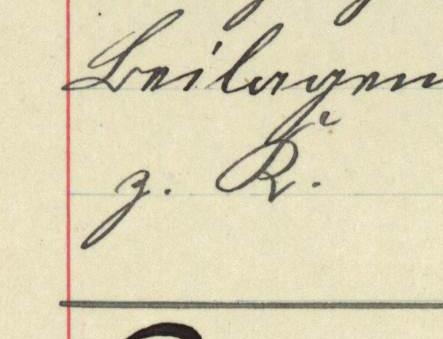 Beilagen
z. K.